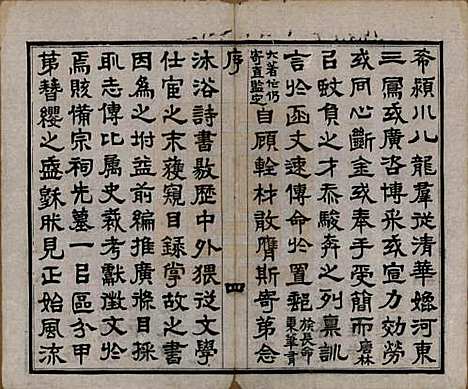 希潁川八龍羣從清華媲河東
三鳳或廣咨博采或宣力効勞
或同心斷金或奉手受簡而慶林
以蚊負之才忝駿奔之列稟訓
言於函丈速傳命於置郵族長命東華胄
大著作仍寄直監定自顧輇材敢膺斯寄第念
序
四
沐浴詩書敭歷中外猥從文學
仕宦之末獲窺目錄掌故之書
因爲之坿益前編推廣條目採
取志傳比屬史裁考獻徵文於
焉賅備宗祠先墓一一區分甲
第簪纓之盛見正始風流